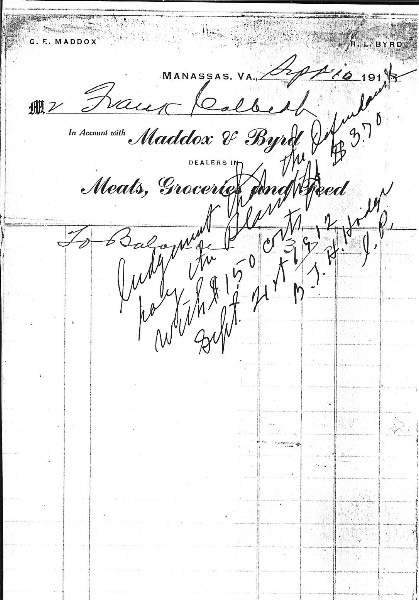 C. E. MADDOX
R. L. BYRD
MANASSAS, VA., Sept 10 191
Mr Frank Colbert
In Account with Maddox & Byrd
DEALERS IN
Meats, Groceries and Feed
To Balance
Judgement that the Defendant
pay the Plaintiff $3.70
with $1.50 costs
Sept. 21st 1912
B. J. H. Hodge
J. P.